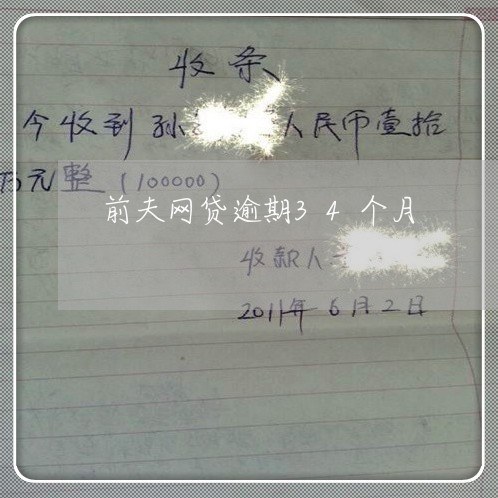 收条
今收到孙 人民币壹拾
万元整(100000)
前夫网贷逾期34个月
收款人
2011年6月2日